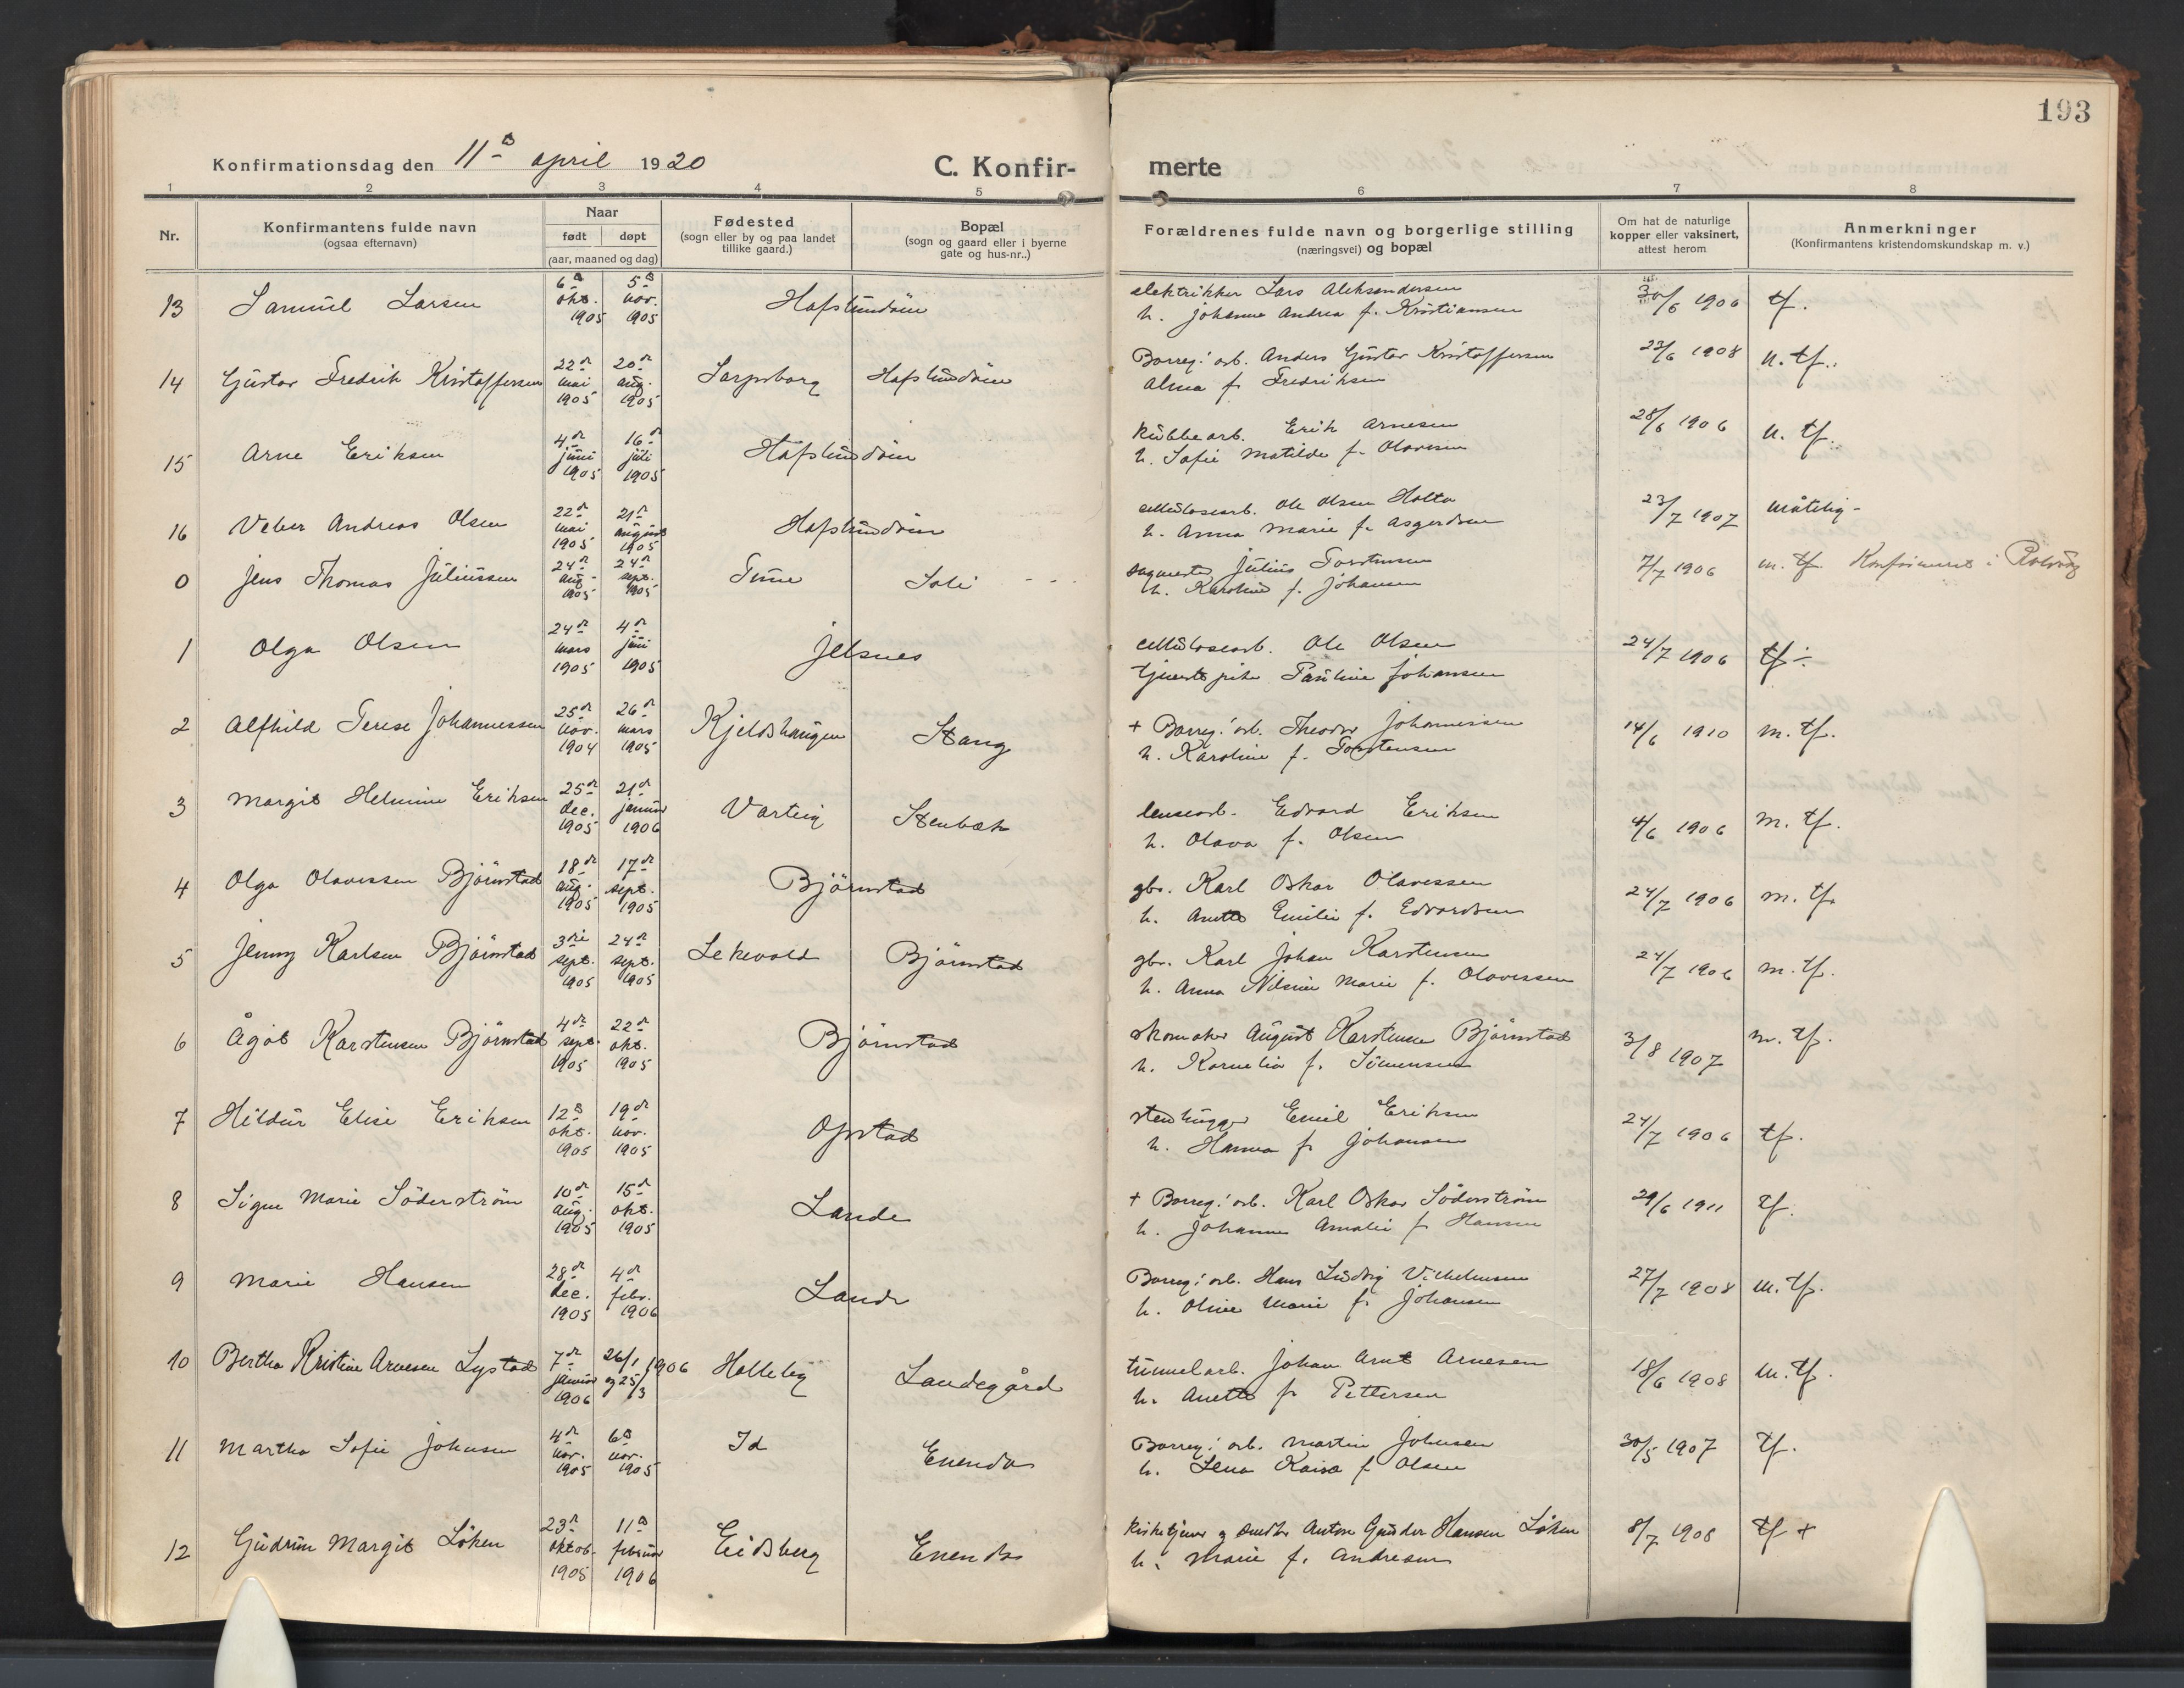 193
Konfirmationsdag den 11te april 1920
C. Konfir-
merte
1 2 3 4 5 6 7 8
Nr.
Konfirmantens fulde navn
(ogsaa efternavn)
Naar
født døpt
(aar, maaned og dag)
Fødested
(sogn eller by og paa landet
tillike gaard.)
Bopæl
(sogn og gaard eller i byerne
gate og hus-nr..)
Forældrenes fulde navn og borgerlige stilling
(næringsvei) og bopæl
Om hat de naturlige
kopper eller vaksinert,
attest herom
Anmerkninger
(Konfirmantens kristendomskundskap m. v.)
13 Samuel Larsen 6te okt. 1905 5te nov. 1905 Hafslundsøen
elektrikker Lars Aleksandersen
h. Johanne Andrea f. Kristiansen
30/6 1906 tf.
14 Gustav Fredrik Kristoffersen 22de mai 1905 20de aug. 1905 Sarpsborg Hafslundsøen
Borreg: arb. Anders Gustav Kristoffersen
Alma f. Fredriksen
23/6 1908 n. tf.
15 Arne Eriksen 4de juni 1905 16de juli 1905 Hafslundsøen
kubbearb. Erik Arnesen
h. Sofie Matilde f. Olavesen
28/6 1906 n. tf.
16 Veber Andreas Olsen 22de mai 1905 21de august 1905 Hafslundsøen
cellulosearb. Ole Olsen Holta
h. Anna Marie f. Asgerdsen
23/7 1907 måtelig-
0 Jens Thomas Juliussen 24de aug. 1905 24de sept. 1905 Tune Soli
Julius Torstensen
h. Karoline f. Johansen
7/7 1906 m. tf. Konfirmeret i Rolvsøy
1 Olga Olsen 24de mars 1905 4de juni 1905 Jelsnes
cellulosearb. Ole Olsen
tjenestepike Pauline Johansen
24/7 1906 tf ÷
2 Alfhild Terese Johannessen 25de nov. 1904 26de mars 1905 Kjeldshaugen Stang
+ Borreg: arb. Theodor Johannessen
h. Karoline f. Torstensen
14/6 1910 m. tf.
3 Margit Helmine Eriksen 25de dec. 1905 21de januar 1906 Varteig Stenbæk
lensearb. Edvard Eriksen
h. Olava f. Olsen
4/6 1906 m. tf.
4 Olga Olavessen Bjørnstad 18de aug. 1905 17de sept. 1905 Bjørnstad
gbr. Karl Oskar Olavessen
h. Anette Emilie f. Edvardsen
24/7 1906 m. tf.
5 Jenny Karlsen Bjørnstad 3die sept. 1905 24de sept. 1905 Lekevold Bjørnstad
gbr. Karl Johan Karstensen
h. Anna Nilsine Marie f. Olavessen
24/7 1906 m. tf.
6 Ågot Karstensen Bjørnstad 4de sept. 1905 22de okt. 1905 Bjørnstad
skomaker August Karstensen Bjørnstad
h. Kornelia f. Simensen
3/8 1907 m. tf.
7 Hildur Elise Eriksen 12te okt. 1905 19de nov. 1905 Opstad
stenhugger Emil Eriksen
h. Hanna f. Johansen
24/7 1906 tf.
8 Signe Marie Söderström 10de aug. 1905 15de okt. 1905 Lande
+ Borreg: arb. Karl Oskar Söderström
h. Johanne Amalie f. Hansen
29/6 1911 tf.
9 Marie Hansen 28de dec. 1905 4de febr. 1906 Lande
Borreg: arb. Hans Ludvig Vilhelmsen
h. Oline Marie f. Johansen
27/7 1908 m. tf.
10 Bertha Kristine Arnesen Lystad 7de januar 1906 26/1 1906 og 25/3 Holleby Landegård
tunnelarb. Johan Arnt Arnesen
h. Anette f. Pettersen
18/6 1908 m. tf.
11 Martha Sofie Johnsen 4de nov. 1905 6te nov. 1905 Id Enenda
Borreg: arb. Martin Johnsen
h. Lena Kaisa f. Olsen
30/5 1907 tf.
12 Gudrun Margit Löken 23de oktob. 1905 11te februar 1906 Eidsberg Enenda
kirketjener og Anton Gunder Hansen Löken
h. Marie f. Andresen
8/7 1908 tf +